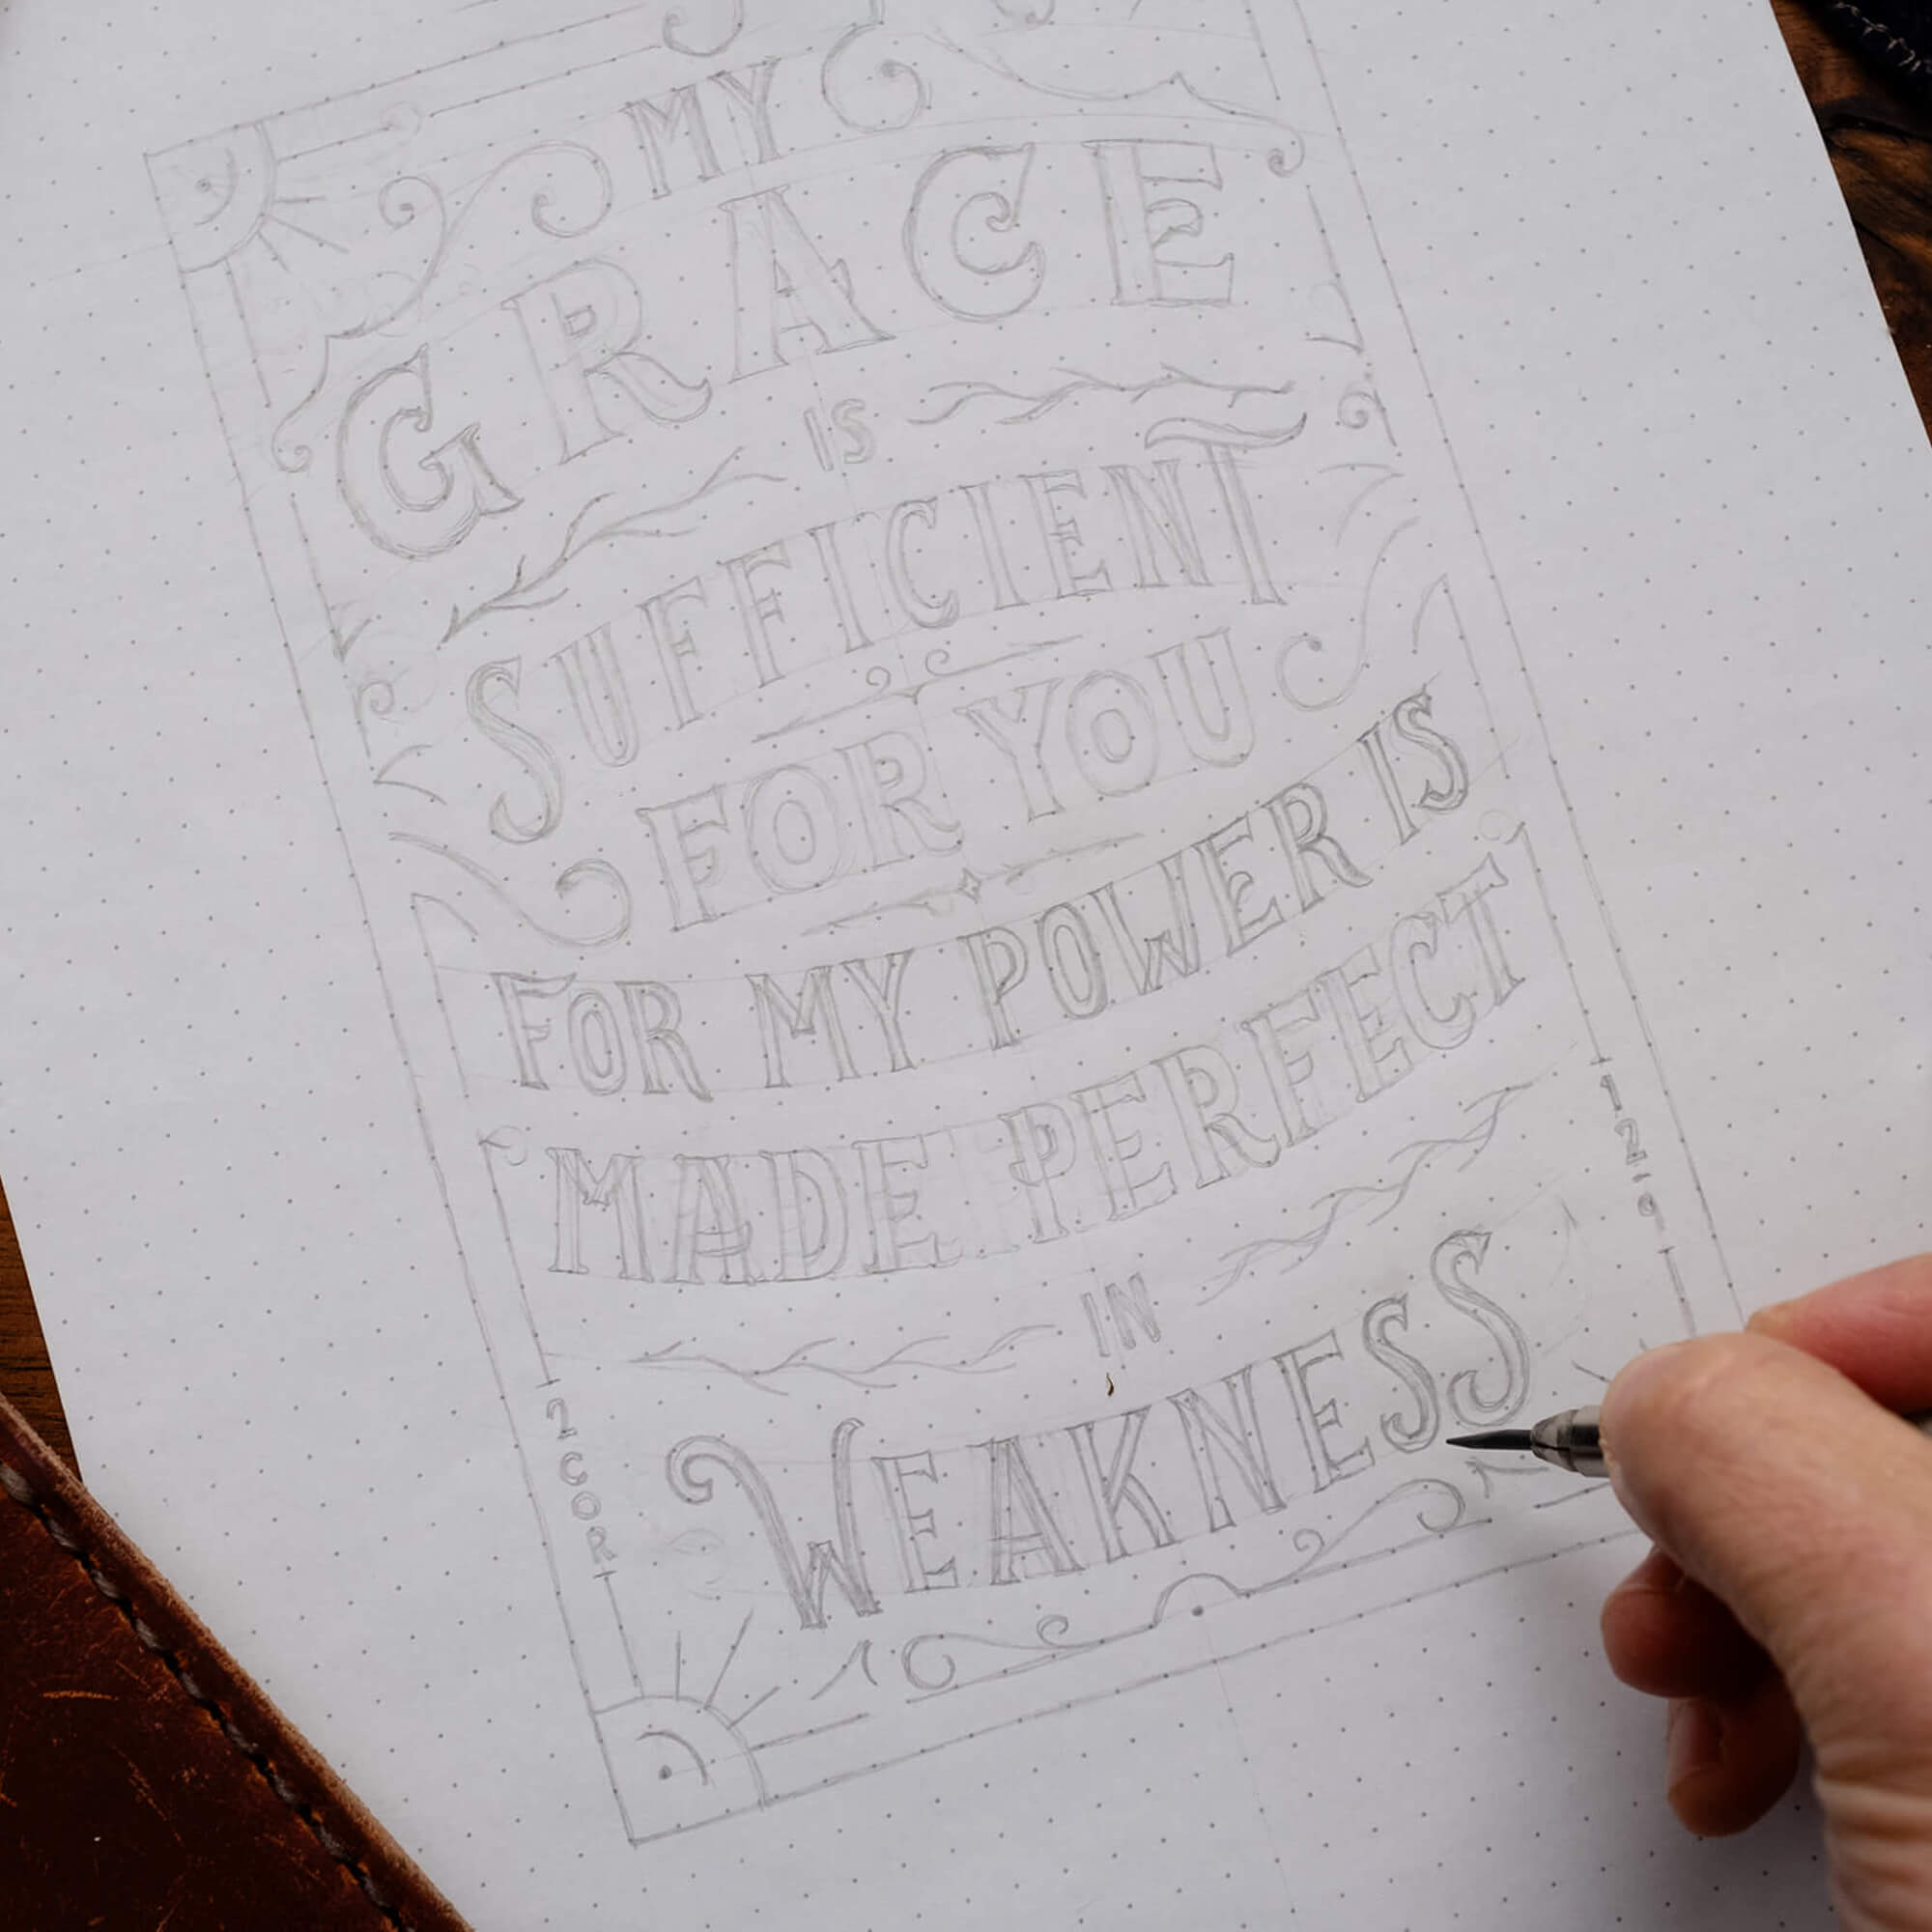 MY
GRACE
IS
SUFFICIENT
FOR YOU
FOR MY POWER IS
MADE PERFECT
IN
WEAKNESS
2 COR
12-9